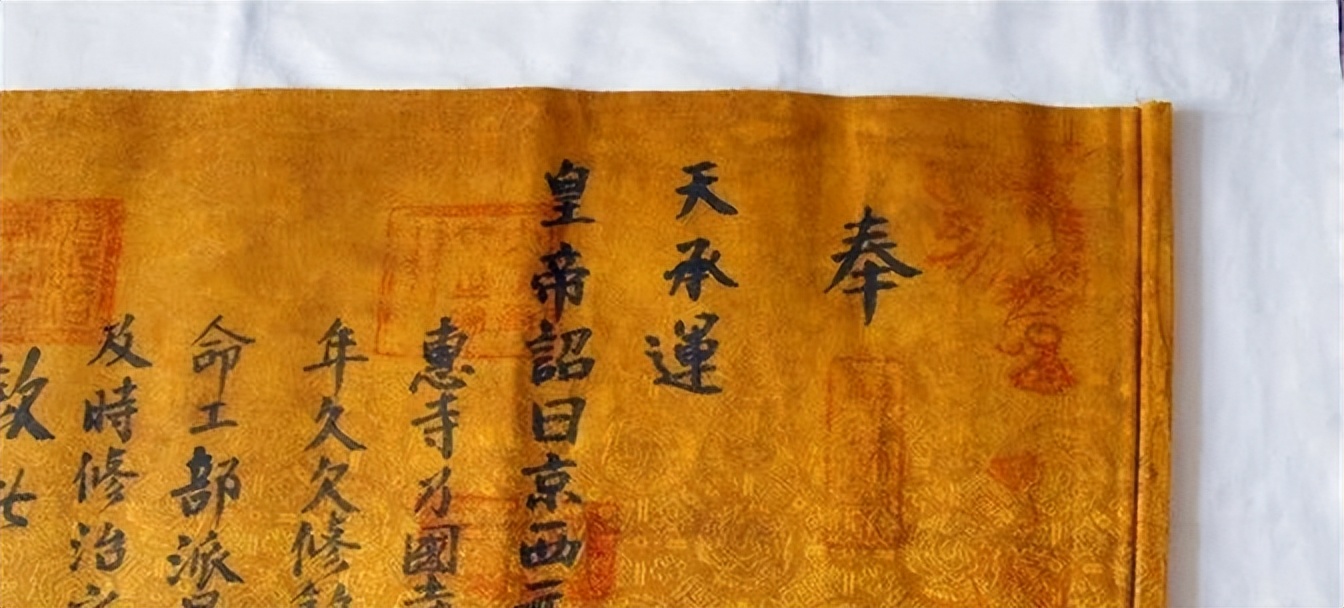 奉
天承運
皇帝詔曰京西
惠寺乃國
年久欠修
命工部派
及時修治
欽此